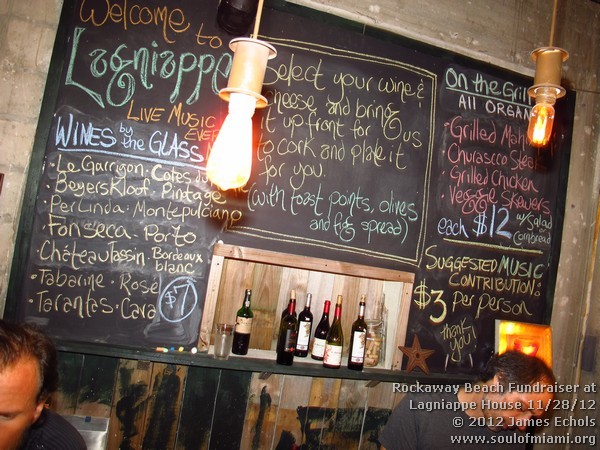 Welcome to
Lagniappe
LIVE MUSIC
WINES by the GLASS
Le Garrigon · Cotes du
Beyerskloof · Pintage
Per Linda · Montepulciano
Fonseca · Porto
Château Tassin · Bordeaux blanc
Tabarine · Rosé
Tarantas · Cava
$7
Select your wine &
cheese, and bring
it up front for us
to cork and plate it
for you.
(with toast points, olives
and fig spread)
On the Grill
All ORGAN
Grilled Mahi
Churasco Steak
Grilled Chicken
Veggie Skewers
each $12 w/ Salad & Cornbread
SUGGESTED MUSIC
CONTRIBUTION:
$3 per Person
thank you!
Rockaway Beach Fundraiser at
Lagniappe House 11/28/12
© 2012 James Echols
www.soulofmiami.org